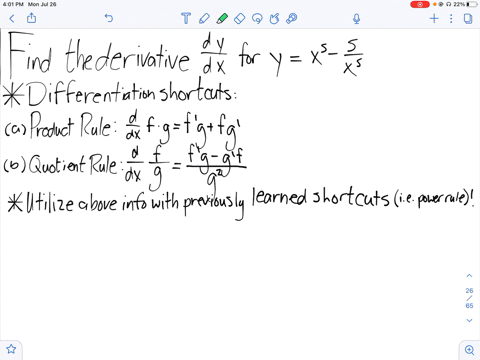 4:01 PM Mon Jul 26
22%
Find the derivative dy/dx for y = x⁵ - 5/x⁵
* Differentiation shortcuts:
(a) Product Rule: d/dx f·g = f'g + fg'
(b) Quotient Rule: d/dx f/g = (f'g - g'f)/g²
* Utilize above info with previously learned shortcuts (i.e. power rule)!
26
/
65